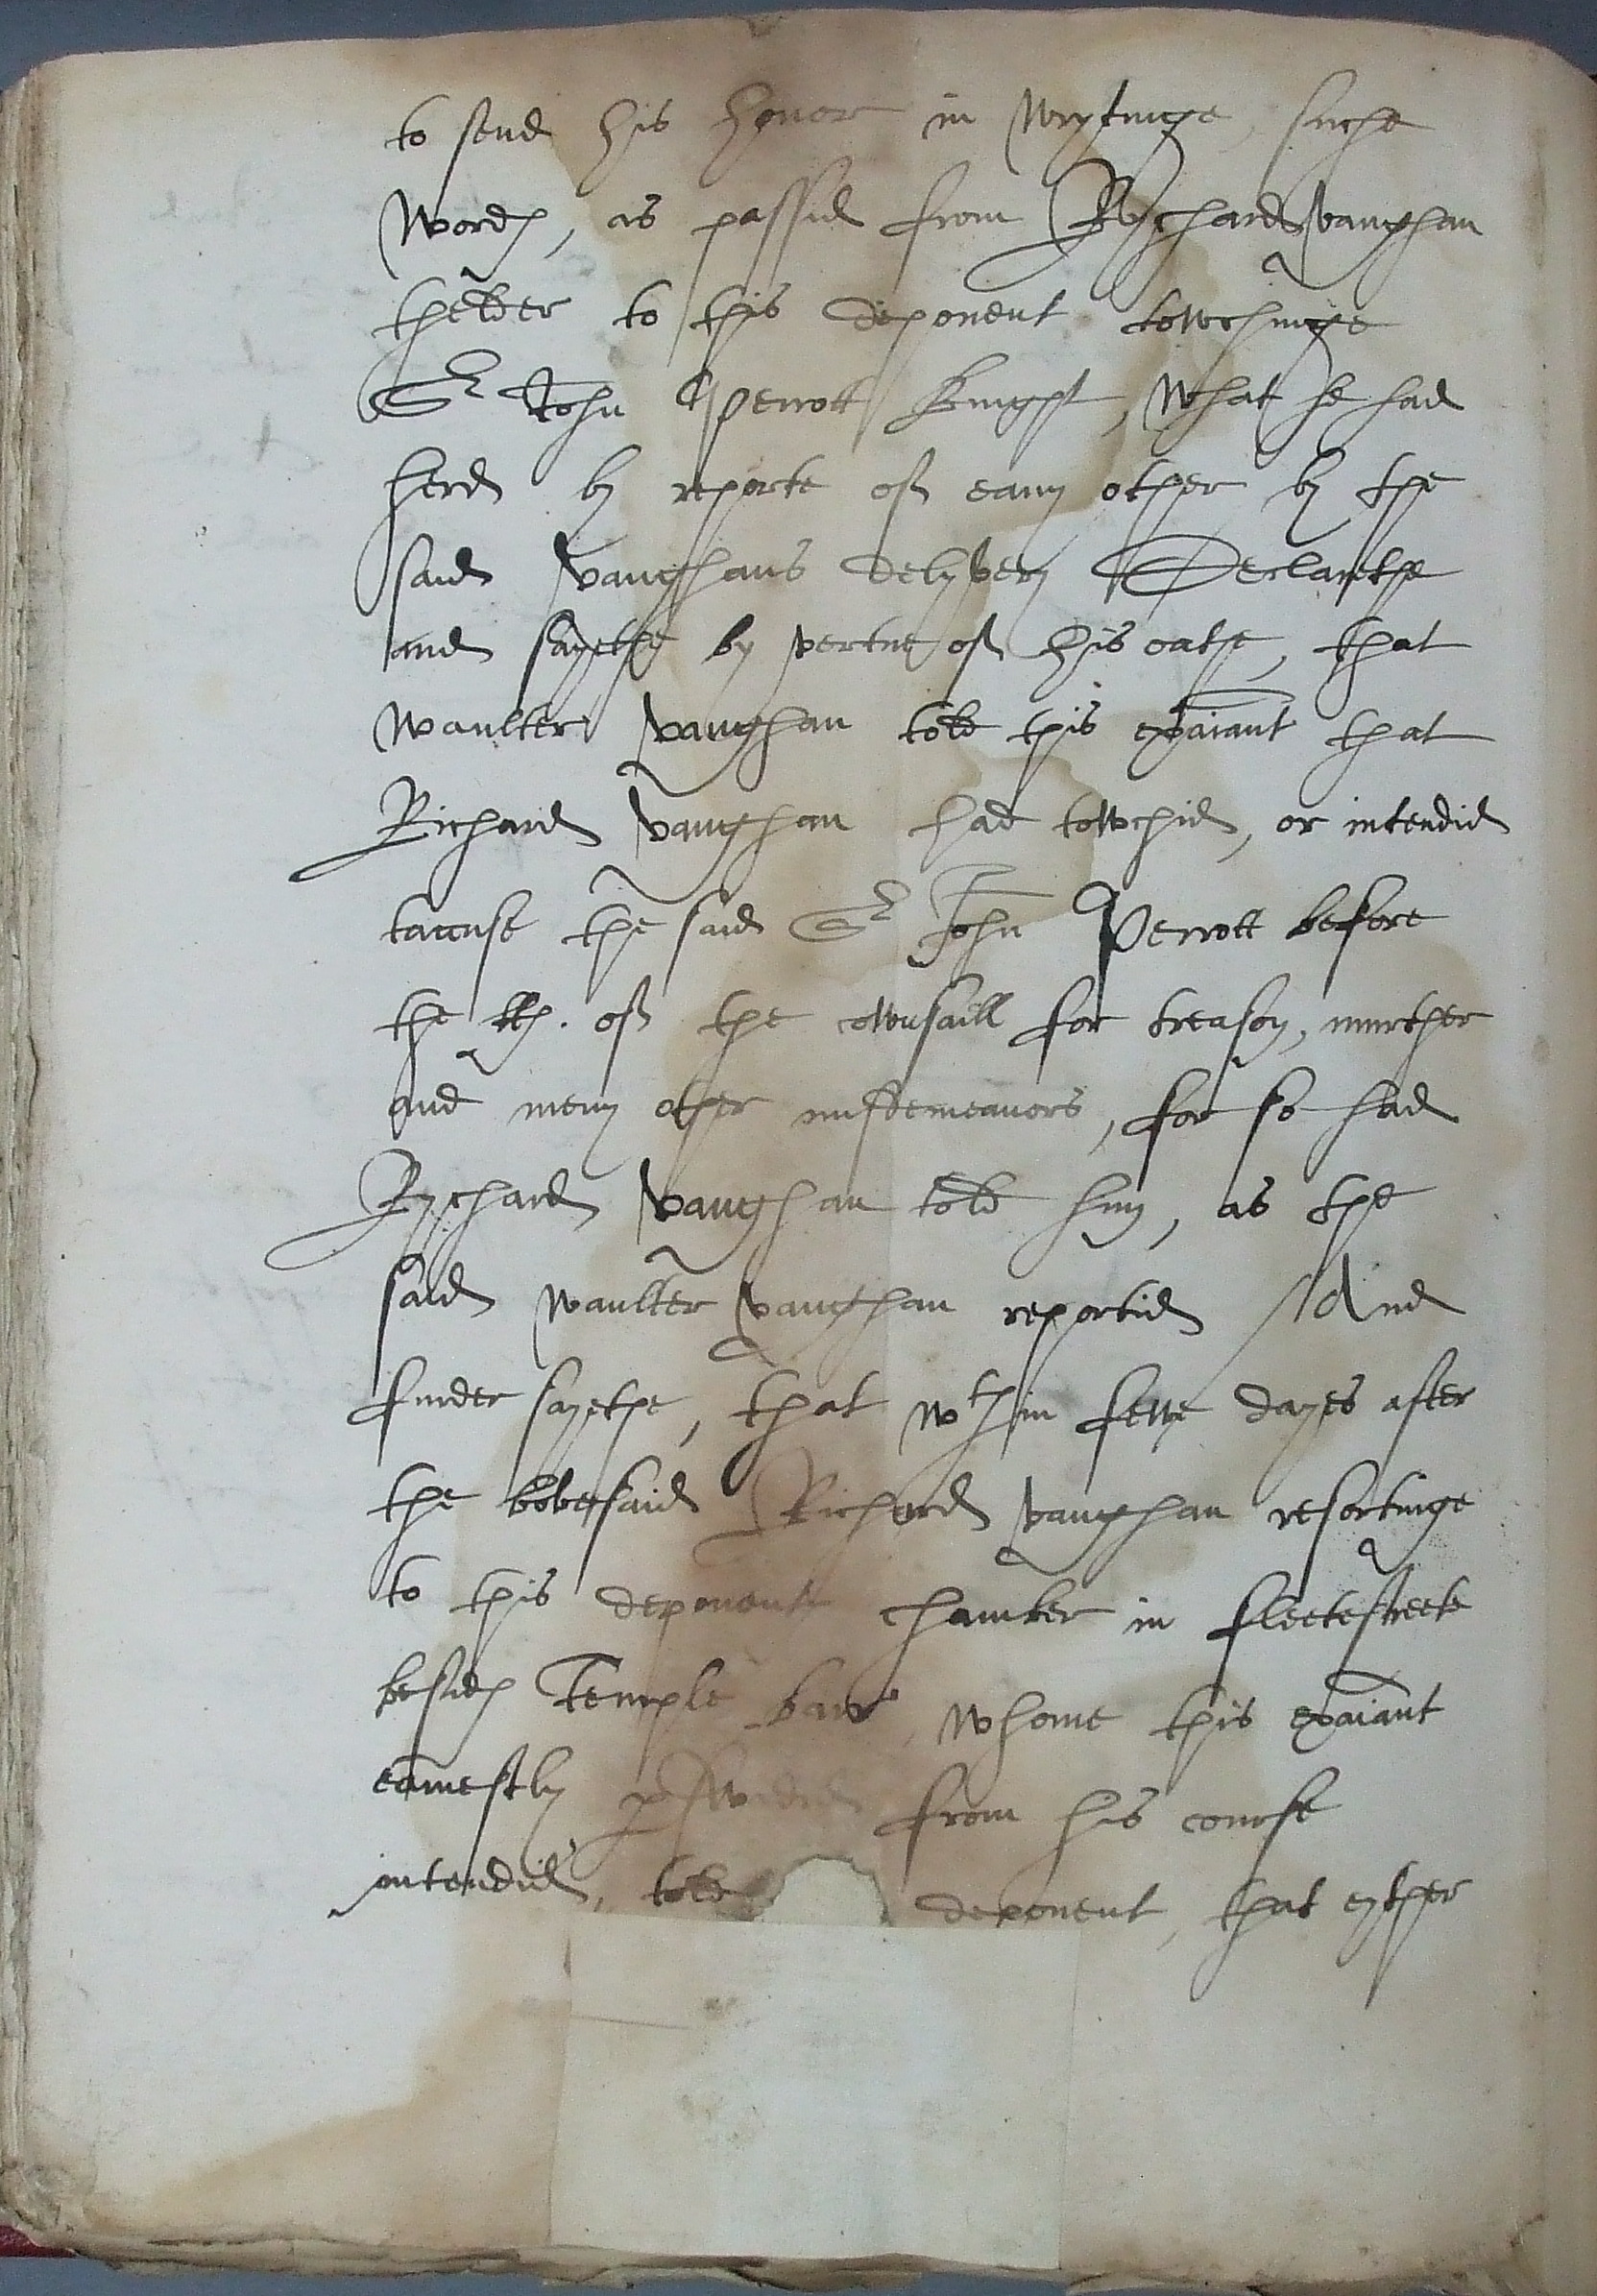 to send his honor in wrytinge, suche
wordes, as passid from Rychard vaughan
thelder to this deponent towchinge
Sr John Perrott knyght, what he had
herd by reporte of eany other by the
said vaughans delyvery Declarethe
and sayethe by vertue of his oathe, that
waulter vaughan told this exaiant that
Richard vaughan had towchid, or intendid
taccuse the said Sr John Perrott before
the llps. of the cownsaill for treason, murther
and meny other misdemeanors, for so had
Rychard vaughan told hym, as the
said waulter vaughan reportid / And
furder sayethe, that wthin fewe dayes after
the bovesaid Richard vaughan resortinge
to this deponents chamber in fleetestreete
besides Temple barr, whome this exaiant
earnestly pswadid from his course
intendid, told deponent, that eyther